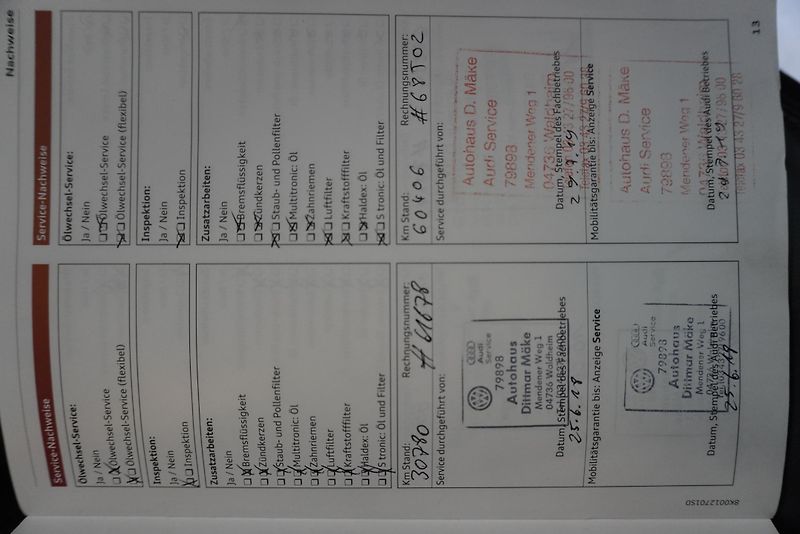 Nachweise
Service-Nachweise
Ölwechsel-Service:
Ja / Nein
Ölwechsel-Service
Ölwechsel-Service (flexibel)
Inspektion:
Ja / Nein
Inspektion
Zusatzarbeiten:
Ja / Nein
Bremsflüssigkeit
Zündkerzen
Staub- und Pollenfilter
Multitronic: Öl
Zahnriemen
Luftfilter
Kraftstofffilter
Haldex: Öl
S tronic: Öl und Filter
Km Stand: Rechnungsnummer:
30780 #61678
Service durchgeführt von:
Audi
Service
79898
Autohaus
Dittmar Mäke
Mendener Weg 1
04736 Waldheim
Datum, Stempel des Fachbetriebes
25.6.18
Mobilitätsgarantie bis: Anzeige Service
Audi
Service
79898
Autohaus
Dittmar Mäke
Mendener Weg 1
04736 Waldheim
Datum, Stempel des Audi Betriebes
25.6.19
Service-Nachweise
Ölwechsel-Service:
Ja / Nein
Ölwechsel-Service
Ölwechsel-Service (flexibel)
Inspektion:
Ja / Nein
Inspektion
Zusatzarbeiten:
Ja / Nein
Bremsflüssigkeit
Zündkerzen
Staub- und Pollenfilter
Multitronic: Öl
Zahnriemen
Luftfilter
Kraftstofffilter
Haldex: Öl
S tronic: Öl und Filter
Km Stand: Rechnungsnummer:
60406 #68702
Service durchgeführt von:
Autohaus D. Mäke
Audi Service
79898
Mendener Weg 1
04736 Waldheim
Datum, Stempel des Fachbetriebes
Mobilitätsgarantie bis: Anzeige Service
Autohaus D. Mäke
Audi Service
79898
Mendener Weg 1
04736 Waldheim
Datum, Stempel des Audi Betriebes
8K0012701S0
13